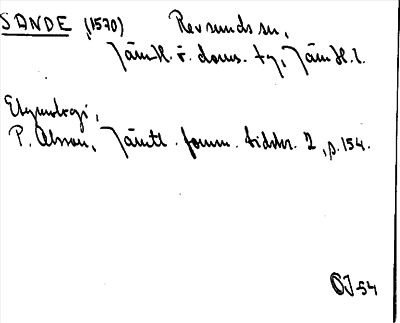 SANDE (1570) Revsunds sn,
Jämtl. ö. doms. tg, Jämtl. l.
Etymologi,
P. Olsson, Jämtl. fornm. tidskr. 2, s. 154.
OJ 54